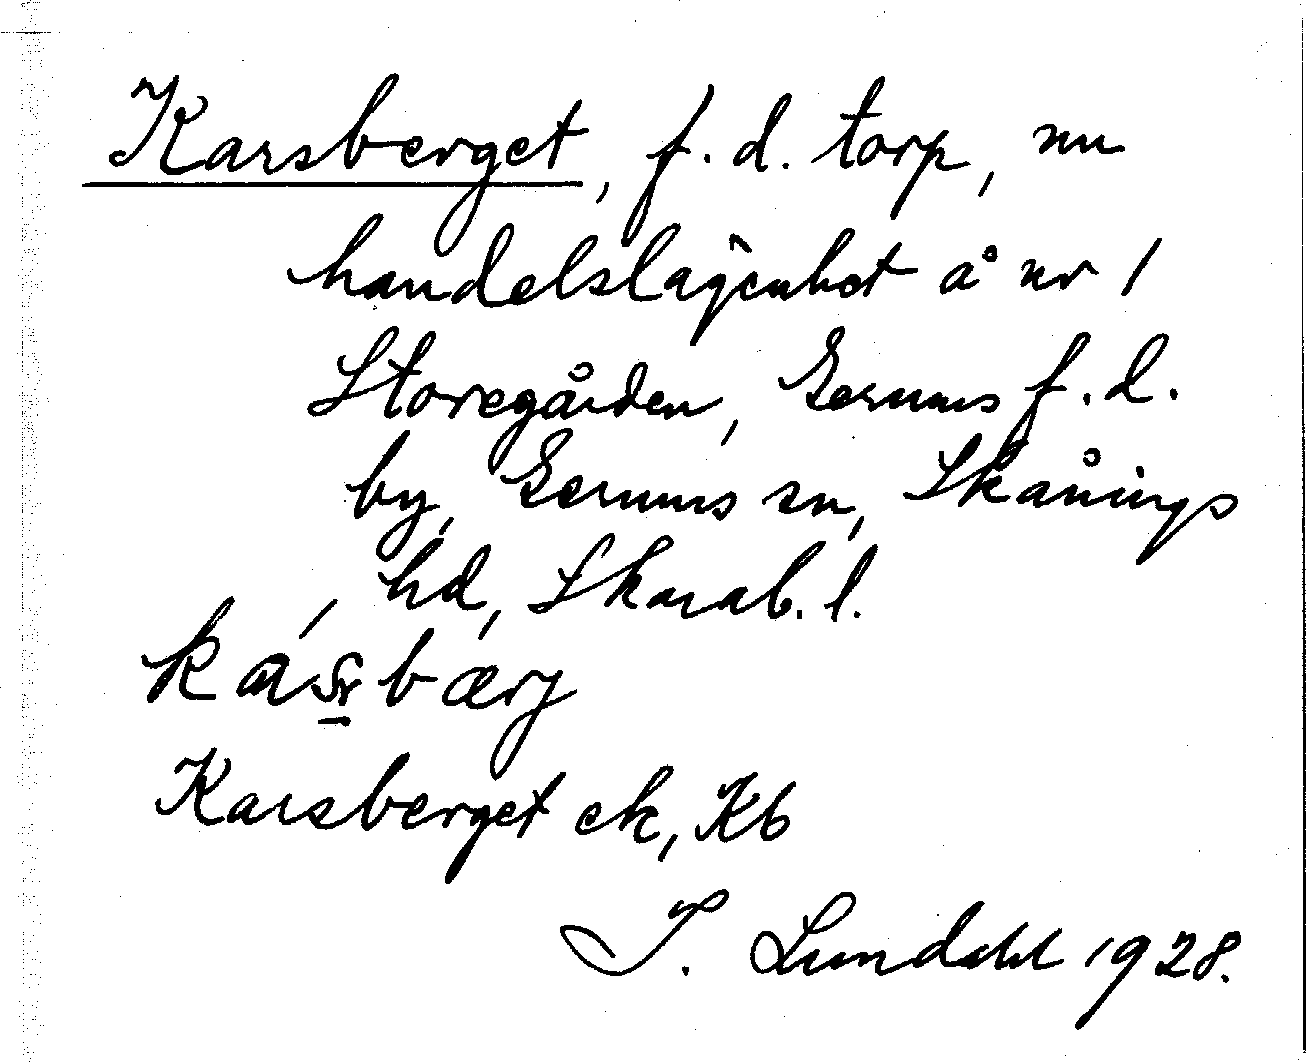 Karsberget, f.d. torp, nu
handelslägenhet å nr 1
Storegården, Gerums f.d.
by, Gerums sn, Skånings
hd, Skarab. l.
Karsberget ek, Kb
I. Lundahl 1928.